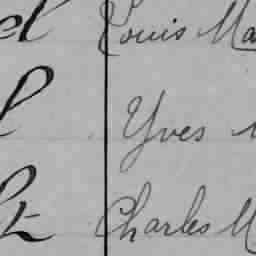 el Louis Ma
Yves
Charles M